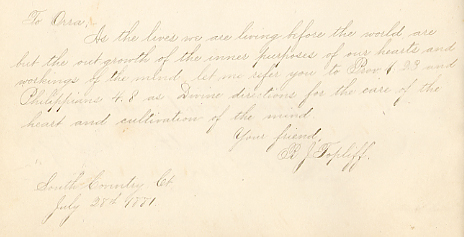 To Orra,
As the lives we are living before the world are
but the outgrowth of the inner purposes of our hearts and
workings of the mind, let me refer you to Prov 4 23 and
Philippians 4. 8 as Divine directions for the care of the
heart and cultivation of the mind
Your friend,
R J Topliff.
South Coventry Ct.
July 28th 1881.